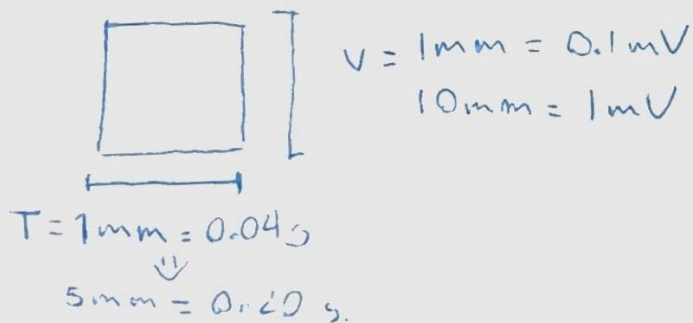 V = 1mm = 0.1mV
10mm = 1mV
T = 1mm = 0.04s
5mm = 0.20 s.